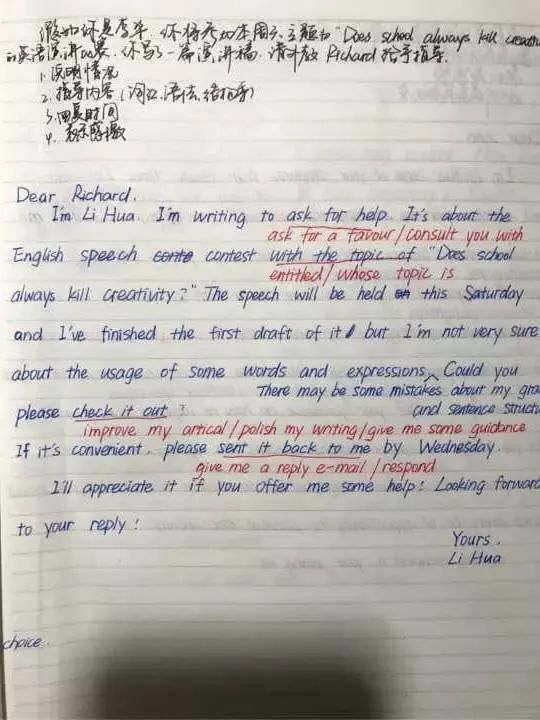 假如你是李华,你将参加本周六主题为"Does school always kill creati
的英语演讲比赛,你写了一篇演讲稿,请外教 Richard 给予指导.
1. 说明情况
2. 指导内容(词汇、语法、结构等)
3. 回复时间
4. 表示感激
Dear Richard.
I'm Li Hua. I'm writing to ask for help. It's about the
ask for a favour/consult you with
English speech contest with the topic of "Does school
entitled/whose topic is
always kill creativity?" The speech will be held this Saturday
and I've finished the first draft of it but I'm not very sure
about the usage of some words and expressions. Could you
There may be some mistakes about my gra
please check it out? and sentence struct
improve my artical/polish my writing/give me some guidance
If it's convenient, please sent it back to me by Wednesday.
give me a reply e-mail/respond
I'll appreciate it if you offer me some help! Looking forward
to your reply!
Yours,
Li Hua
choice.